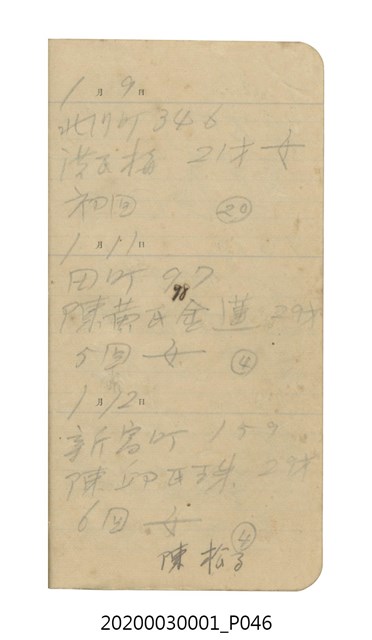 1月9日
北川町346
洪氏梅 21才 女
初回 ⑳
1月11日
田町 97
98
陳黄氏金蓮 29才
5回 女 ④
1月12日
新富町 159
陳邱氏珠 27才
6回 女 ④
陳 松子
20200030001_P046